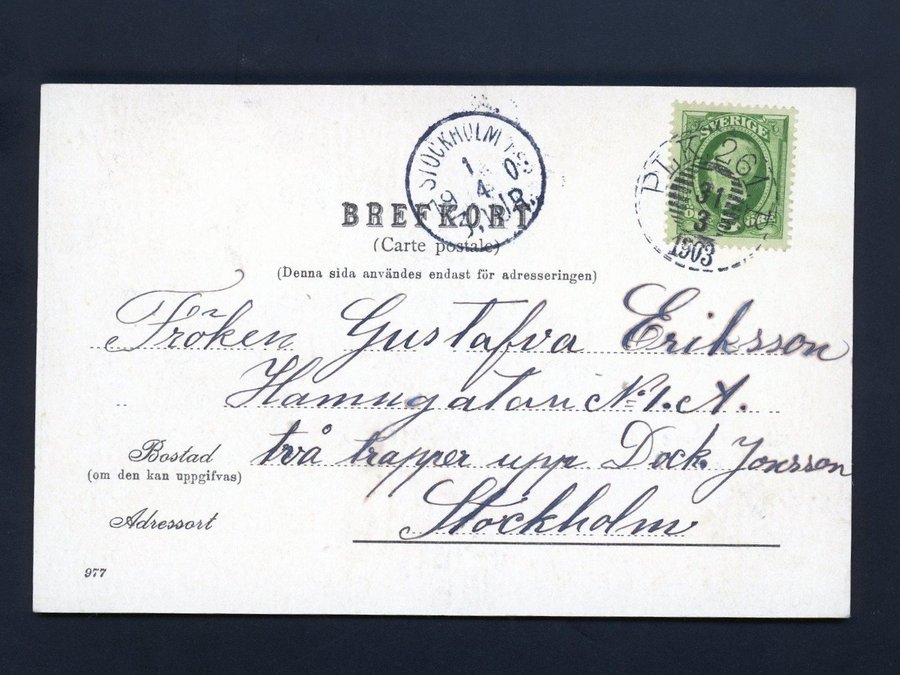 SVERIGE
PLK 261
31
3
1903
STOCKHOLM 1
1
4
BREFKORT
(Carte postale)
(Denna sida användes endast för adresseringen)
Fröken Gustafva Eriksson
Hamngatan No 1. A.
Bostad
(om den kan uppgifvas)
två trapper upp Dock. Jonsson
Adressort
Stockholm
977